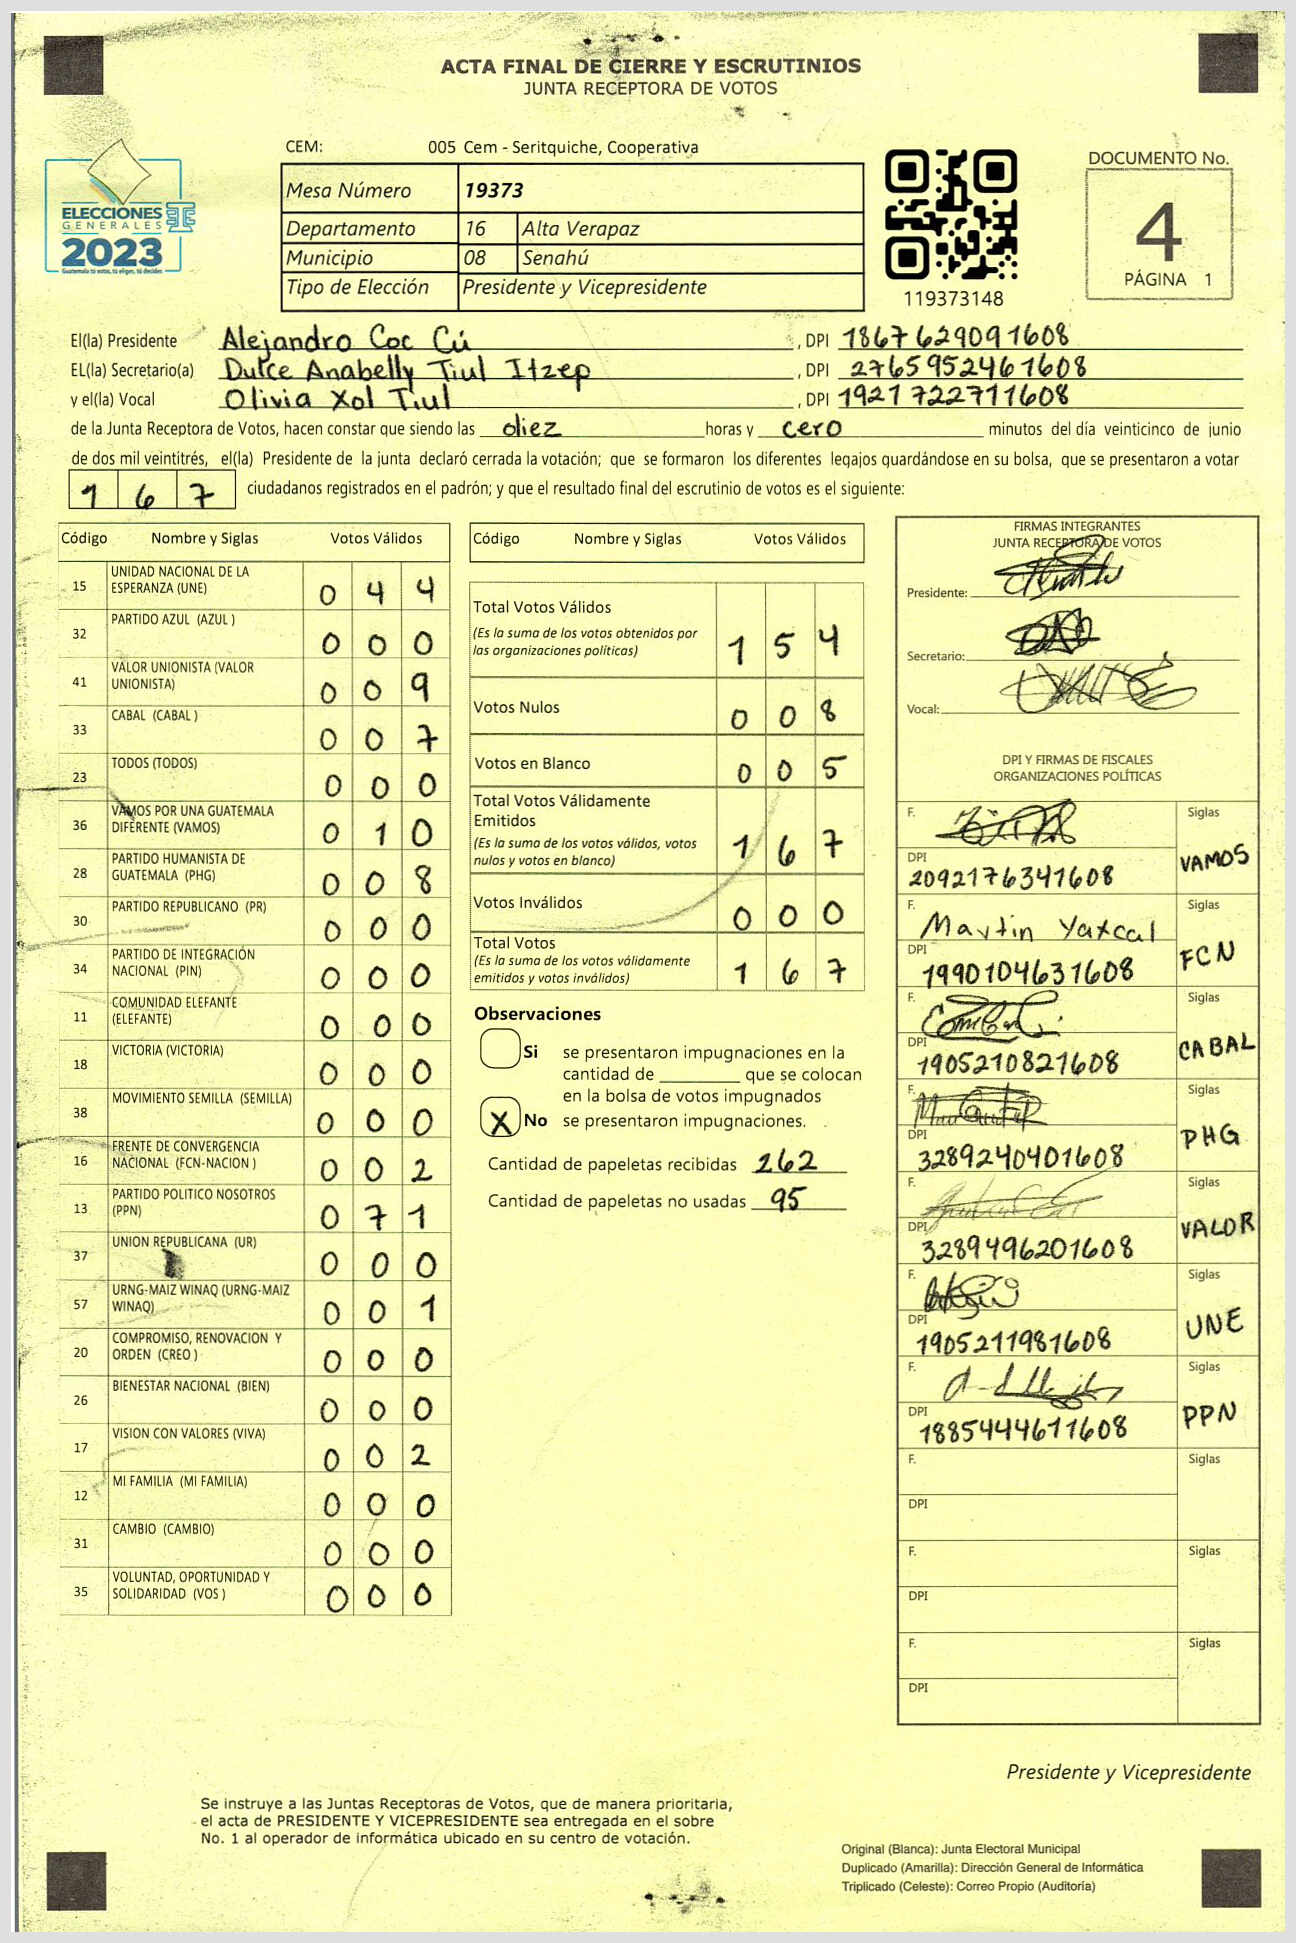 ACTA FINAL DE CIERRE Y ESCRUTINIOS
JUNTA RECEPTORA DE VOTOS
ELECCIONES
GENERALES
2023
Guatemala tú votas, tú eliges, tú decides
CEM: 005 Cem - Seritquiche, Cooperativa
Mesa Número 19373
Departamento 16 Alta Verapaz
Municipio 08 Senahú
Tipo de Elección Presidente y Vicepresidente
119373148
DOCUMENTO No.
4
PÁGINA 1
El(la) Presidente Alejandro Coc Cú , DPI 1867629091608
EL(la) Secretario(a) Dulce Anabelly Tiul Itzep , DPI 2765952461608
y el(la) Vocal Olivia Xol Tiul , DPI 1921722711608
de la Junta Receptora de Votos, hacen constar que siendo las diez horas y cero minutos del día veinticinco de junio
de dos mil veintitrés, el(la) Presidente de la junta declaró cerrada la votación; que se formaron los diferentes legajos guardándose en su bolsa, que se presentaron a votar
1 6 7 ciudadanos registrados en el padrón; y que el resultado final del escrutinio de votos es el siguiente:
Código Nombre y Siglas Votos Válidos
15 UNIDAD NACIONAL DE LA
ESPERANZA (UNE) 0 4 4
32 PARTIDO AZUL (AZUL ) 0 0 0
41 VALOR UNIONISTA (VALOR
UNIONISTA) 0 0 9
33 CABAL (CABAL ) 0 0 7
23 TODOS (TODOS) 0 0 0
36 VAMOS POR UNA GUATEMALA
DIFERENTE (VAMOS) 0 1 0
28 PARTIDO HUMANISTA DE
GUATEMALA (PHG) 0 0 8
30 PARTIDO REPUBLICANO (PR) 0 0 0
34 PARTIDO DE INTEGRACIÓN
NACIONAL (PIN) 0 0 0
11 COMUNIDAD ELEFANTE
(ELEFANTE) 0 0 0
18 VICTORIA (VICTORIA) 0 0 0
38 MOVIMIENTO SEMILLA (SEMILLA) 0 0 0
16 FRENTE DE CONVERGENCIA
NACIONAL (FCN-NACION ) 0 0 2
13 PARTIDO POLITICO NOSOTROS
(PPN) 0 7 1
37 UNION REPUBLICANA (UR) 0 0 0
57 URNG-MAIZ WINAQ (URNG-MAIZ
WINAQ) 0 0 1
20 COMPROMISO, RENOVACION Y
ORDEN (CREO ) 0 0 0
26 BIENESTAR NACIONAL (BIEN) 0 0 0
17 VISION CON VALORES (VIVA) 0 0 2
12 MI FAMILIA (MI FAMILIA) 0 0 0
31 CAMBIO (CAMBIO) 0 0 0
35 VOLUNTAD, OPORTUNIDAD Y
SOLIDARIDAD (VOS ) 0 0 0
Código Nombre y Siglas Votos Válidos
Total Votos Válidos
(Es la suma de los votos obtenidos por
las organizaciones políticas) 1 5 4
Votos Nulos 0 0 8
Votos en Blanco 0 0 5
Total Votos Válidamente
Emitidos
(Es la suma de los votos válidos, votos
nulos y votos en blanco) 1 6 7
Votos Inválidos 0 0 0
Total Votos
(Es la suma de los votos válidamente
emitidos y votos inválidos) 1 6 7
Observaciones
Si se presentaron impugnaciones en la
cantidad de ________ que se colocan
en la bolsa de votos impugnados
X No se presentaron impugnaciones.
Cantidad de papeletas recibidas 262
Cantidad de papeletas no usadas 95
FIRMAS INTEGRANTES
JUNTA RECEPTORA DE VOTOS
Presidente:
Secretario:
Vocal:
DPI Y FIRMAS DE FISCALES
ORGANIZACIONES POLÍTICAS
F. Siglas
DPI VAMOS
2092176341608
F. Martin Yaxcal Siglas
DPI FCN
1990104631608
F. Siglas
DPI CABAL
1905210821608
F. Siglas
DPI PHG
3289240401608
F. Siglas
DPI VALOR
3289496201608
F. Siglas
DPI UNE
1905211981608
F. Siglas
DPI PPN
1885444611608
F. Siglas
DPI
F. Siglas
DPI
F. Siglas
DPI
Presidente y Vicepresidente
Se instruye a las Juntas Receptoras de Votos, que de manera prioritaria,
el acta de PRESIDENTE Y VICEPRESIDENTE sea entregada en el sobre
No. 1 al operador de informática ubicado en su centro de votación.
Original (Blanca): Junta Electoral Municipal
Duplicado (Amarilla): Dirección General de Informática
Triplicado (Celeste): Correo Propio (Auditoría)